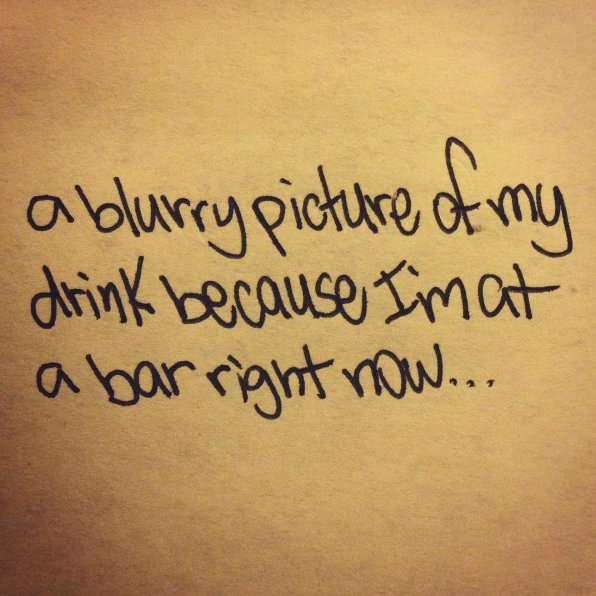 a blurry picture of my
drink because I'm at
a bar right now...